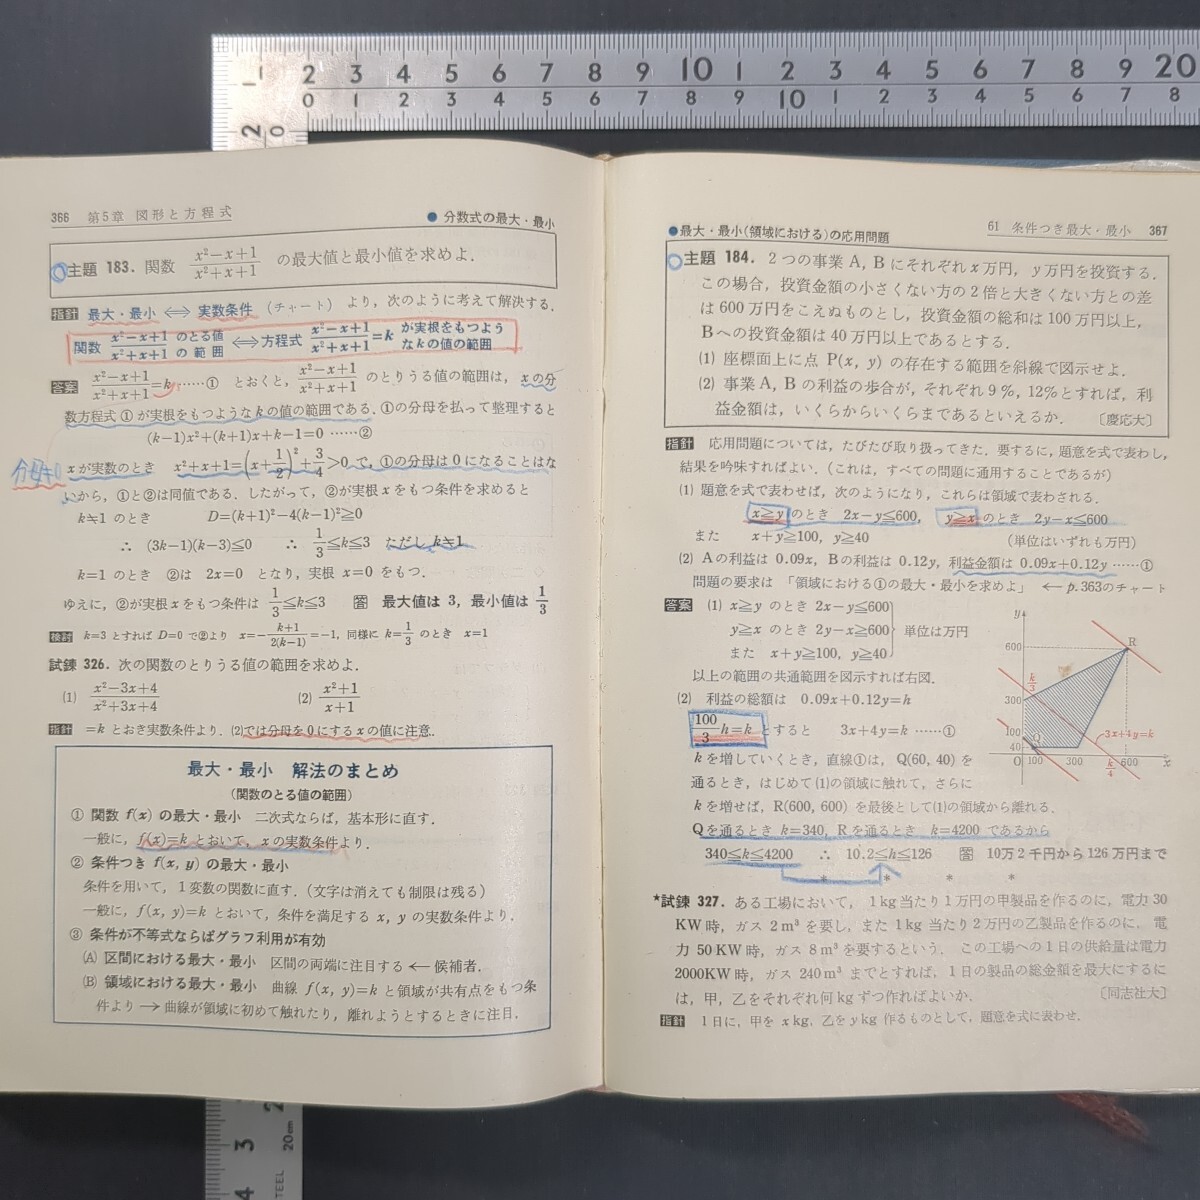 1 2 3 4 5 6 7 8 9 10 1 2 3 4 5 6 7 8 9 20
0 1 2 3 4 5 6 7 8 9 10 1 2 3 4 5 6 7 8
2 0
366 第5章 図形と方程式
● 分数式の最大・最小
主題 183. 関数 (x²−x+1)/(x²+x+1) の最大値と最小値を求めよ.
指針 最大・最小 ⟺ 実数条件 (チャート) より，次のように考えて解決する.
関数 (x²−x+1)/(x²+x+1) のとる値の範囲 ⟺ 方程式 (x²−x+1)/(x²+x+1)=k が実根をもつようなkの値の範囲
答案 (x²−x+1)/(x²+x+1)=k ……① とおくと，(x²−x+1)/(x²+x+1) のとりうる値の範囲は，xの分
数方程式①が実根をもつようなkの値の範囲である. ①の分母を払って整理すると
(k−1)x²+(k+1)x+k−1=0 ……②
分母≠0
xが実数のとき x²+x+1=(x+1/2)²+3/4>0 で，①の分母は0になることはな
いから，①と②は同値である. したがって，②が実根xをもつ条件を求めると
k≠1 のとき D=(k+1)²−4(k−1)²≧0
∴ (3k−1)(k−3)≦0 ∴ 1/3≦k≦3 ただし k≠1
k=1 のとき ②は 2x=0 となり，実根 x=0 をもつ.
ゆえに，②が実根xをもつ条件は 1/3≦k≦3 答 最大値は 3，最小値は 1/3
検討 k=3 とすれば D=0 で②より x=−(k+1)/2(k−1)=−1, 同様に k=1/3 のとき x=1
試錬 326. 次の関数のとりうる値の範囲を求めよ.
(1) (x²−3x+4)/(x²+3x+4) (2) (x²+1)/(x+1)
指針 =k とおき実数条件より. (2)では分母を0にするxの値に注意.
最大・最小 解法のまとめ
(関数のとる値の範囲)
① 関数 f(x) の最大・最小 二次式ならば，基本形に直す.
一般に，f(x)=k とおいて，xの実数条件より.
② 条件つき f(x, y) の最大・最小
条件を用いて，1変数の関数に直す. (文字は消えても制限は残る)
一般に，f(x, y)=k とおいて，条件を満足する x, y の実数条件より.
③ 条件が不等式ならばグラフ利用が有効
(A) 区間における最大・最小 区間の両端に注目する ← 候補者.
(B) 領域における最大・最小 曲線 f(x, y)=k と領域が共有点をもつ条
件より → 曲線が領域に初めて触れたり，離れようとするときに注目.
● 最大・最小(領域における)の応用問題
61 条件つき最大・最小 367
主題 184. 2つの事業A，Bにそれぞれx万円，y万円を投資する.
この場合，投資金額の小さくない方の2倍と大きくない方との差
は600万円をこえぬものとし，投資金額の総和は100万円以上，
Bへの投資金額は40万円以上であるとする.
(1) 座標面上に点 P(x, y) の存在する範囲を斜線で図示せよ.
(2) 事業A，Bの利益の歩合が，それぞれ9％，12％とすれば，利
益金額は，いくらからいくらまであるといえるか. 〔慶応大〕
指針 応用問題については，たびたび取り扱ってきた. 要するに，題意を式で表わし，
結果を吟味すればよい. (これは，すべての問題に通用することであるが)
(1) 題意を式で表わせば，次のようになり，これらは領域で表わされる.
x≧y のとき 2x−y≦600, y≧x のとき 2y−x≦600
また x+y≧100, y≧40 (単位はいずれも万円)
(2) Aの利益は 0.09x，Bの利益は 0.12y，利益金額は 0.09x+0.12y ……①
問題の要求は「領域における①の最大・最小を求めよ」 ← p.363のチャート
答案 (1) x≧y のとき 2x−y≦600
y≧x のとき 2y−x≧600 単位は万円
また x+y≧100, y≧40
以上の範囲の共通範囲を図示すれば右図.
(2) 利益の総額は 0.09x+0.12y=h
100/3 h=k とすると 3x+4y=k ……①
kを増していくとき，直線①は，Q(60, 40) を
通るとき，はじめて(1)の領域に触れて，さらに
kを増せば，R(600, 600) を最後として(1)の領域から離れる.
Qを通るとき k=340, Rを通るとき k=4200 であるから
340≦k≦4200 ∴ 10.2≦h≦126 答 10万2千円から126万円まで
* * * *
y
R
600
k/3
300
100
40
Q
O 100 300 600 x
3x+4y=k
k/4
★試錬 327. ある工場において，1kg当たり1万円の甲製品を作るのに，電力30
KW時，ガス 2m³ を要し，また1kg当たり2万円の乙製品を作るのに，電
力 50KW時，ガス 8m³を要するという. この工場への1日の供給量は電力
2000KW時，ガス 240m³ までとすれば，1日の製品の総金額を最大にするに
は，甲，乙をそれぞれ何kgずつ作ればよいか. 〔同志社大〕
指針 1日に，甲を x kg, 乙を y kg 作るものとして，題意を式に表わせ.
3 2
4 20cm
STEEL